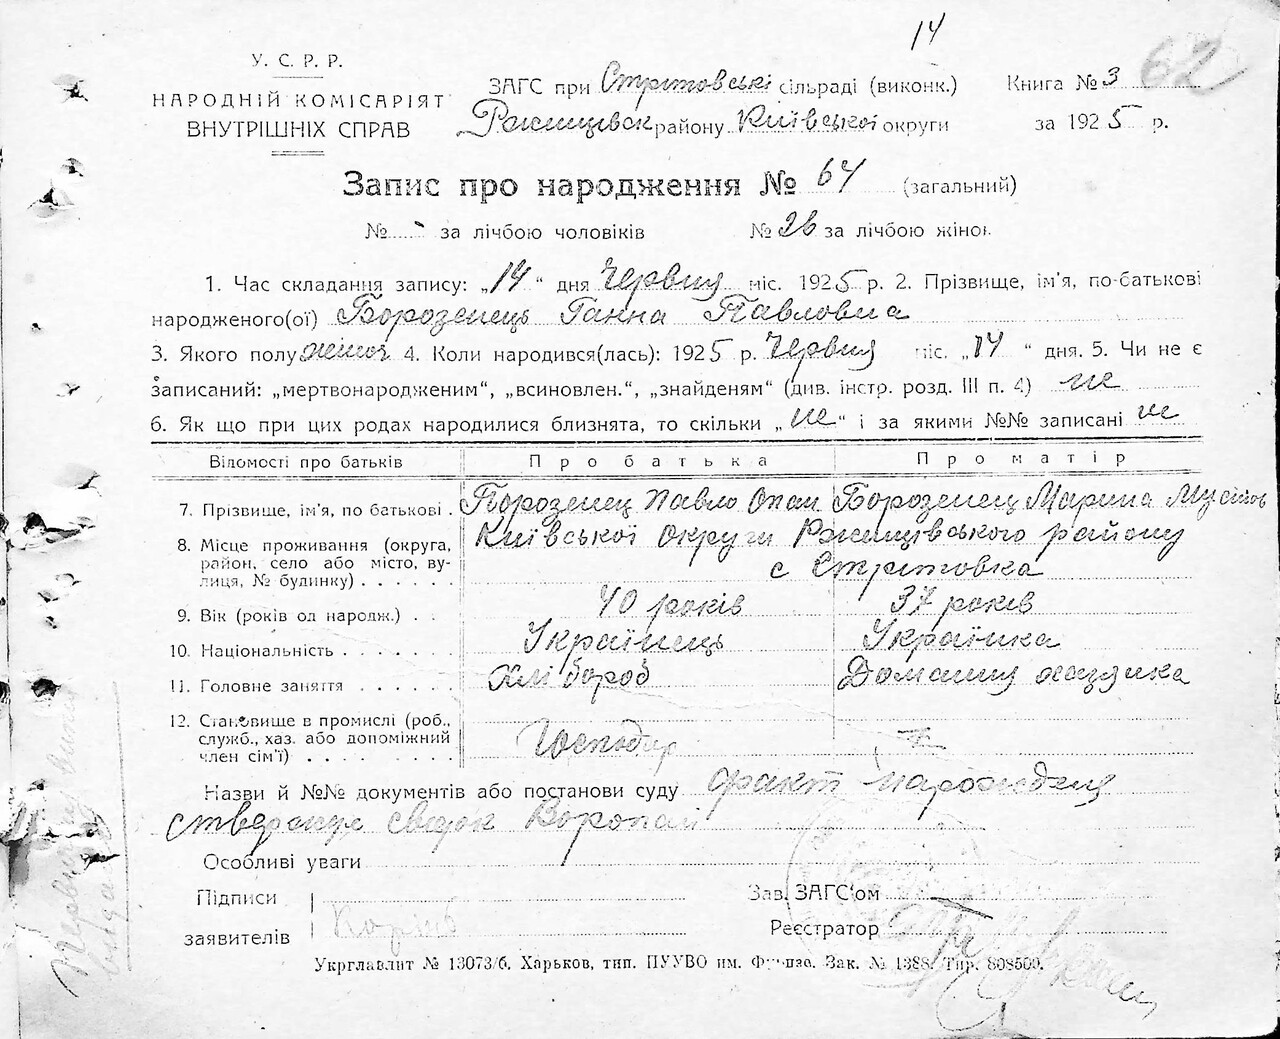 14
62
У. С. Р. Р.
НАРОДНІЙ КОМІСАРІЯТ
ВНУТРІШНІХ СПРАВ
ЗАГС при Стрітовські сільраді (виконк.) Книга № 3
Ржищівск району Київської округи за 1925 р.
Запис про народження № 64 (загальний)
№ - за лічбою чоловіків № 26 за лічбою жінок
1. Час складання запису: „14“ дня Червня міс. 1925 р. 2. Прізвище, ім'я, по-батькові
народженого(ої) Борозенець Ганна Павловна
3. Якого полу жіноч 4. Коли народився(лась): 1925 р. Червня міс. „14“ дня. 5. Чи не є
записаний: „мертвонародженим“, „всиновлен.“, „знайденям“ (див. інстр. розд. III п. 4) не
6. Як що при цих родах народилися близнята, то скільки „не“ і за якими №№ записані не
Відомості про батьків Про батька Про матір
7. Прізвище, ім'я, по батькові . Борозенец Павло Опан Борозенец Марина
8. Місце проживання (округа, район, село або місто, вулиця, № будинку) . . . . . . Київської Округи Ржищівського району
с Стрітовка
9. Вік (років од народж.) . . 40 років 37 років
10. Національність . . . . . . . Українець Українка
11. Головне заняття . . . . . . Хлібороб Домашня хазяйка
12. Становище в промислі (роб., служб., хаз. або допоміжний член сім'ї) . . . . . . . . Господар
Назви й №№ документів або постанови суду факт народження
ствержує свідок Воропай
Особливі уваги
Підписи
заявителів
Зав. ЗАГС'ом
Реєстратор
Укрглавлит № 13073/б. Харьков, тип. ПУУВО им. Фрунзе. Зак. № 1388. Тир. 808500.
Первопис
видано